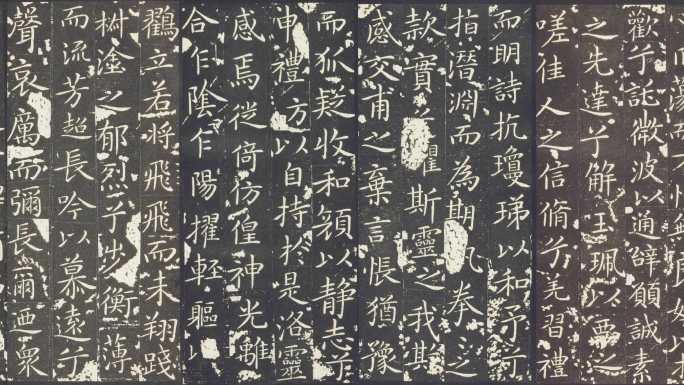 蕩而不
歡兮託微波以通辭願誠素
之先達兮解玉珮以要之
嗟佳人之信脩兮羌習禮
而明詩抗瓊珶以和予兮
指潛淵而為期 拳之
款實 懼斯靈之我欺
感交甫之棄言悵猶豫
而狐疑收和顏以静志兮
申禮防以自持於是洛靈
感焉徙倚彷徨神光離
合乍陰乍陽擢輕軀以
鸖立若将飛飛而未翔踐
塗之郁烈兮步衡薄
而流芳超長吟以慕遠兮
聲哀厲而彌長爾迺衆